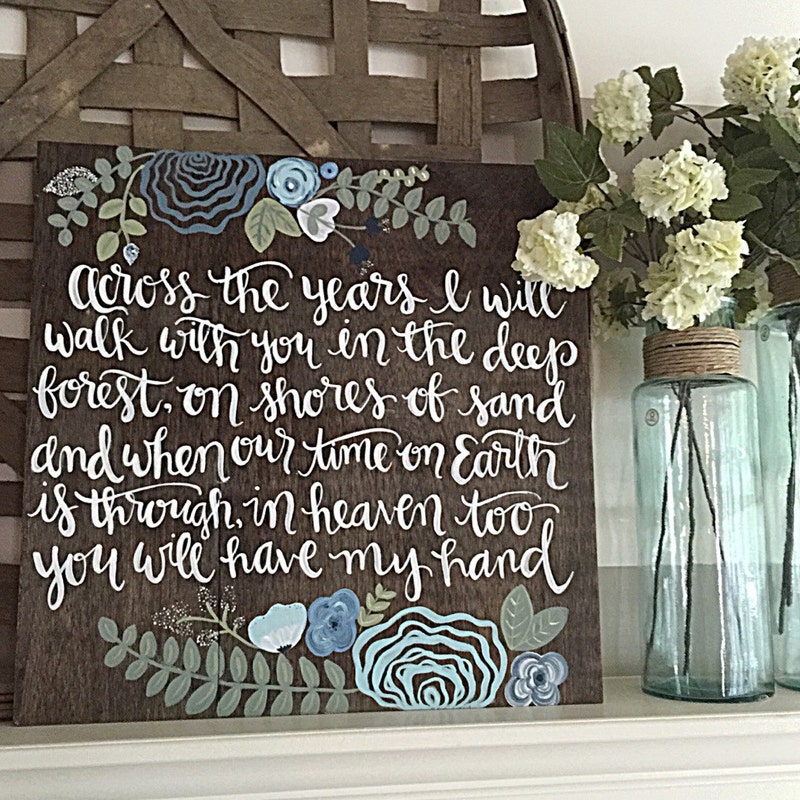 Across the years I will
walk with you in the deep
forest, on shores of sand
and when our time on Earth
is through, in heaven too
you will have my hand